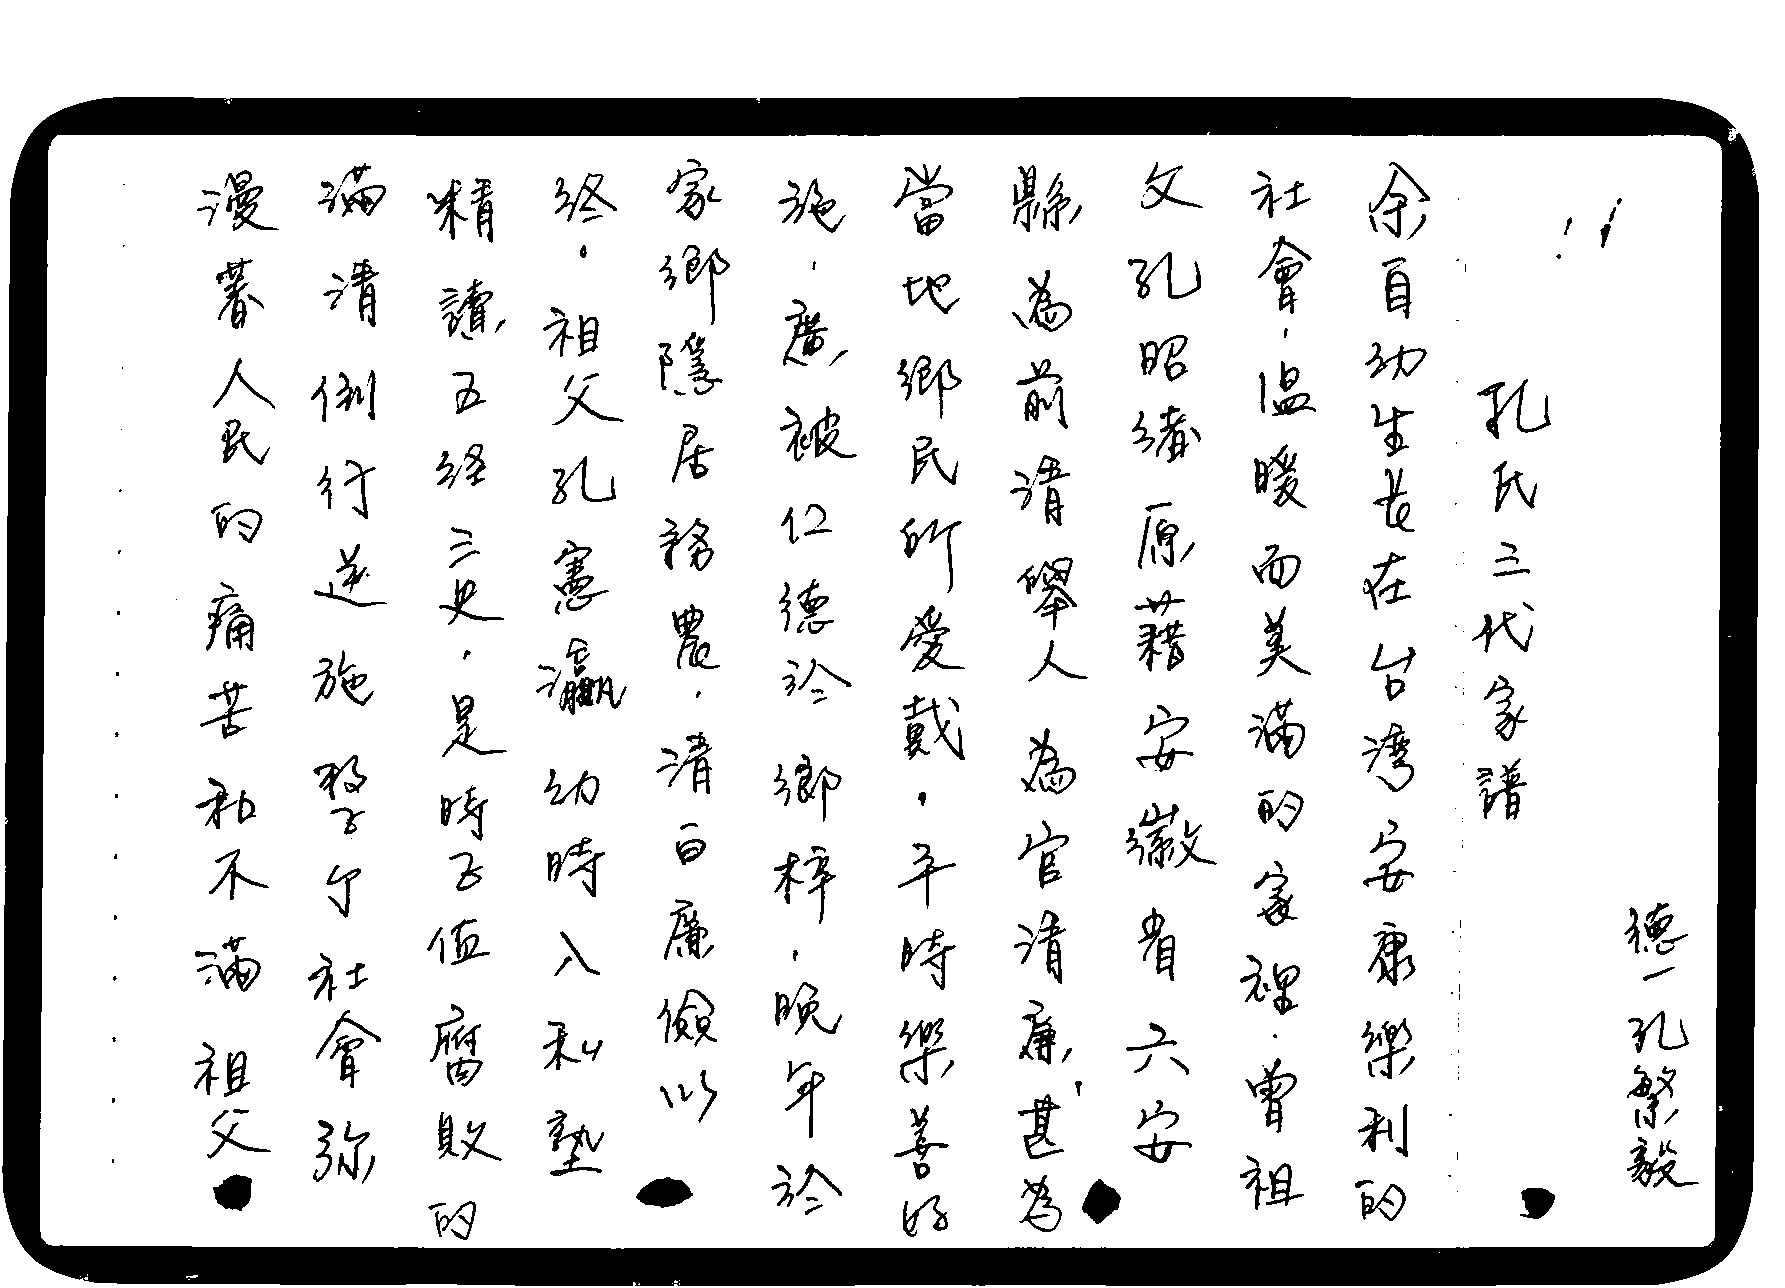 德一孔繁毅
孔氏三代家譜
余自幼生長在台湾安康樂利的
社會,温暖而美滿的家裡.曾祖
父孔昭緒原藉安徽省六安
縣為前清舉人為官清廉,甚為
當地鄉民所愛戴.平時樂善好
施.廣被仁德於鄉梓.晚年於
家鄉隱居務農.清白廉儉以
終.祖父孔憲瀛幼時入私塾
精讀五経三史.是時正值腐敗的
滿清倒行逆施整个社會弥
漫著人民的痛苦和不滿祖父